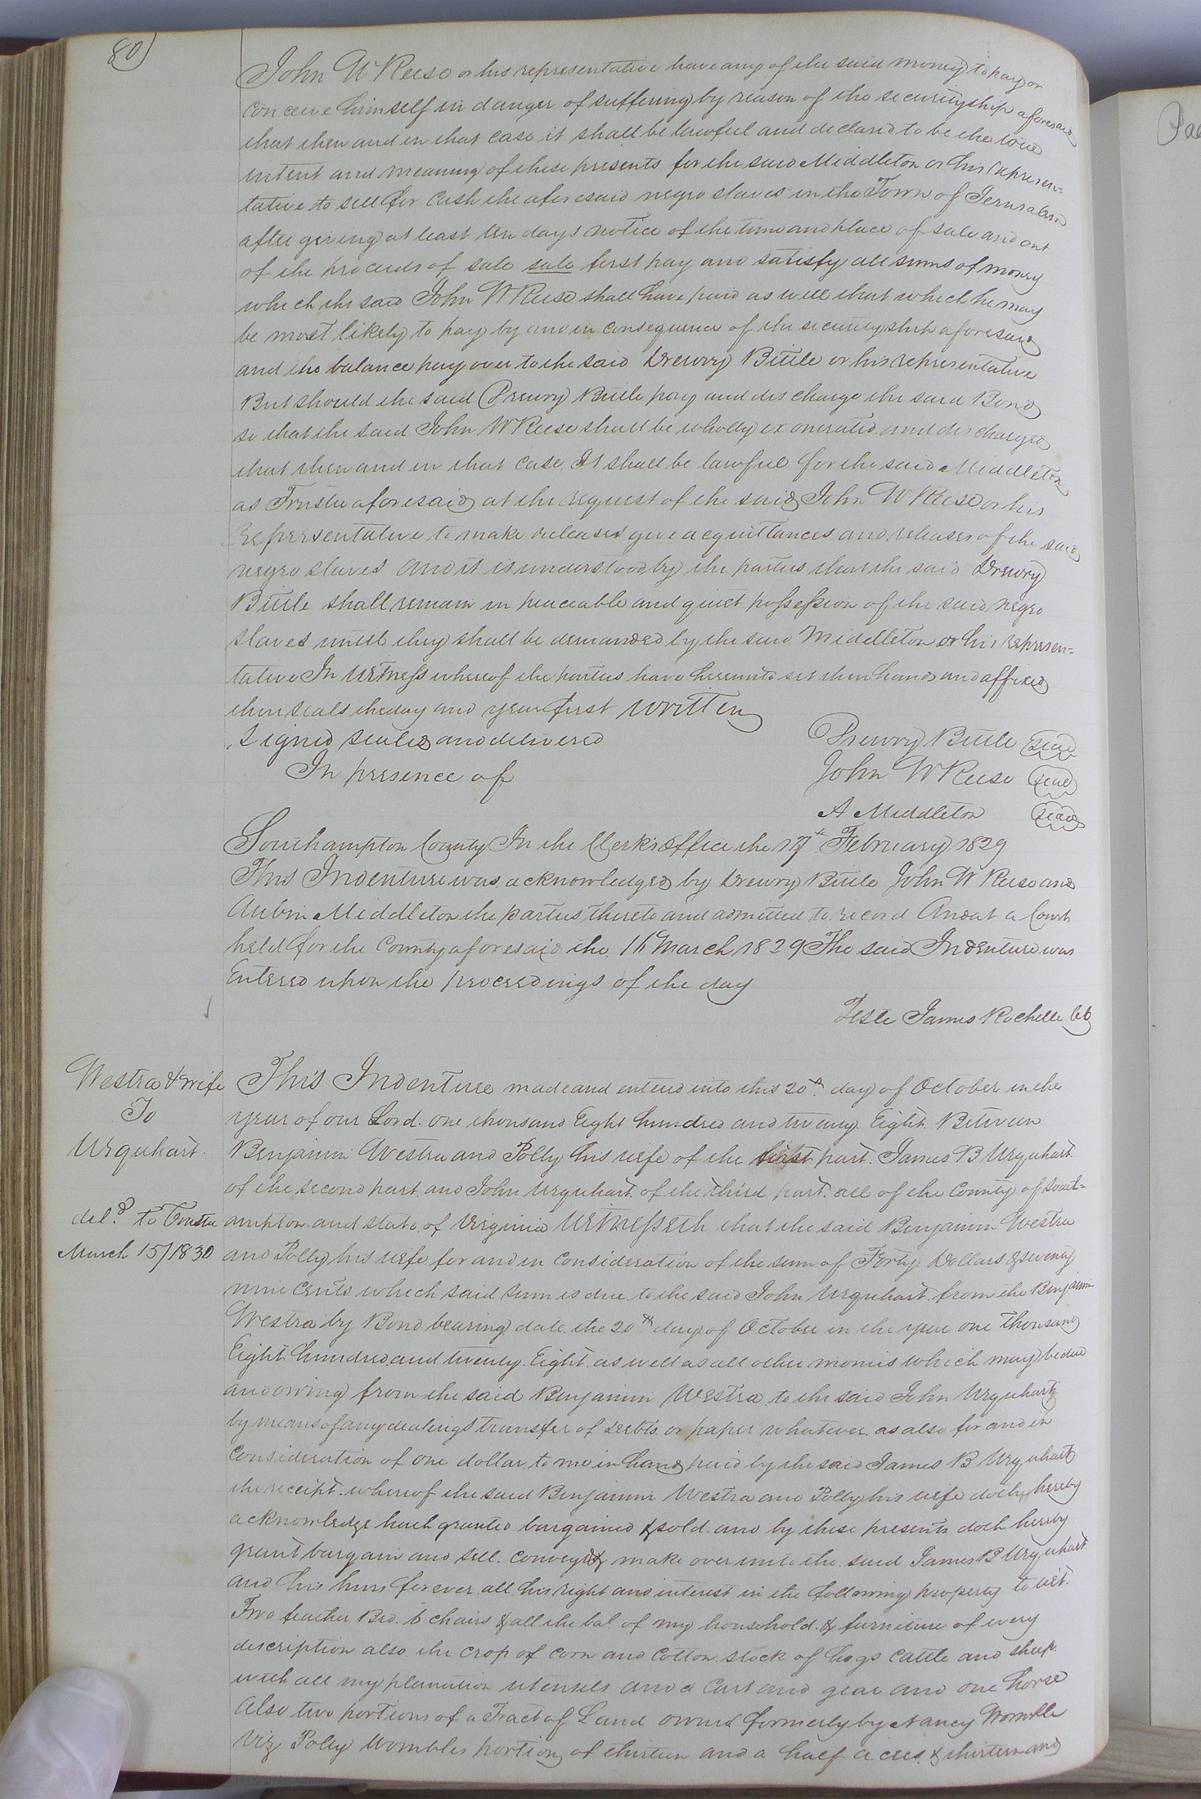 80
John W Reese or his representative have any of the said money to pay or
conceive himself in danger of suffering by reason of the securityship aforesaid
that then and in that case it shall be lawful and declared to be the true
intent and meaning of these presents for the said Middleton or his represen-
tative to sell for cash the aforesaid negro slaves in the Town of Jerusalem
after giving at least ten days notice of the time and place of sale and out
of the proceeds of sale sale first pay and satisfy all sums of money
which the said John W Reese shall have paid as well that which he may
be most likely to pay by and in consequence of the securityship aforesaid
and the balance pay over to the said Drewry Bittle or his representative
But should the said Drewry Bittle pay and discharge the said Bond
so that the said John W Reese shall be wholly exonerated and discharged
that then and in that case It shall be lawful for the said Middleton
as Trustee aforesaid at the request of the said John W Reese or his
representative to make releases give acquittances and releases of the said
negro slaves And it is understood by the parties that the said Drewry
Bittle shall remain in peaceable and quiet possession of the said negro
slaves until they shall be demanded by the said Middleton or his represen-
tative In Witness whereof the parties have hereunto set their hands and affixed
their seals the day and year first written
Signed sealed and delivered
In presence of
Drewry Bittle seal
John W Reese seal
A Middleton seal
Southampton County In the Clerk's Office the 17th February 1829
This Indenture was acknowledged by Drewry Bittle John W Reese and
Aubin Middleton the parties thereto and admitted to record And at a Court
held for the County aforesaid the 16 March 1829 The said Indenture was
Entered upon the proceedings of the day
Teste James Rochelle Ck
Westra & wife
To
Urquhart
deld. to Trustee
March 15/1830
This Indenture made and entered into this 20th day of October in the
year of our Lord one thousand Eight hundred and twenty Eight Between
Benjamin Westra and Polly his wife of the first part James B Urquhart
of the second part and John Urquhart of the third part all of the County of South-
ampton and state of Virginia Witnesseth that the said Benjamin Westra
and Polly his wife for and in consideration of the sum of Forty Dollars & seventy
nine cents which said sum is due to the said John Urquhart from the Benjamin
Westra by Bond bearing date the 20th day of October in the year one thousand
Eight hundred and twenty Eight as well as all other monies which may be due
and owing from the said Benjamin Westra to the said John Urquhart
by means of any dealings transfer of debts or paper whatever as also for and in
consideration of one dollar to me in hand paid by the said James B Urquhart
the receipt whereof the said Benjamin Westra and Polly his wife doth hereby
acknowledge hath granted bargained & sold and by these presents doth hereby
grant bargain and sell convey & make over unto the said James B Urquhart
and his heirs forever all his right and interest in the following property to wit.
Two feather Bed. 6 chairs & all the bal of my household & furniture of every
description also the crop of corn and cotton stock of hogs cattle and sheep
with all my plantation utensils and a cart and gear and one horse
Also two portions of a Tract of Land owned formerly by Nancy Womble
viz Polly Wombles portion of thirteen and a half acres & thirteen and